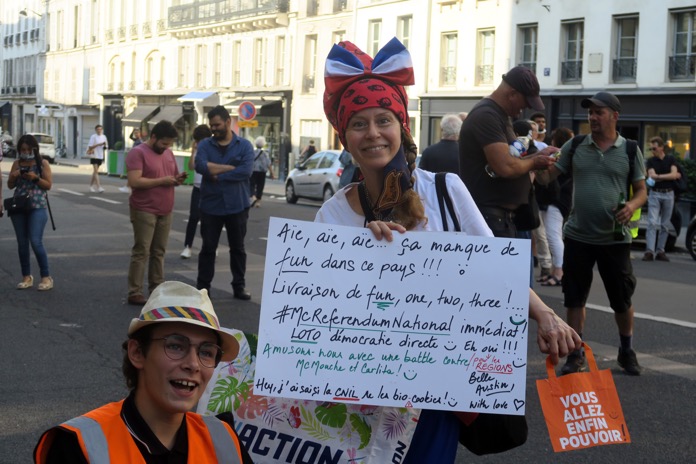 Aïe, aïe, aïe... ça manque de
fun dans ce pays !!! :
Livraison de fun, one, two, three !
#McReferendumNational immédiat !
LOTO démocratie directe Eh oui !!!
Amusons-nous avec une battle contre/pour les RÉGIONS
McMouche et Carlita !
Hey, j'ai saisi la CNIL re les bio-cookies !
Bella
Austin,
with love ♡
ACTION
VOUS
ALLEZ
ENFIN
POUVOIR